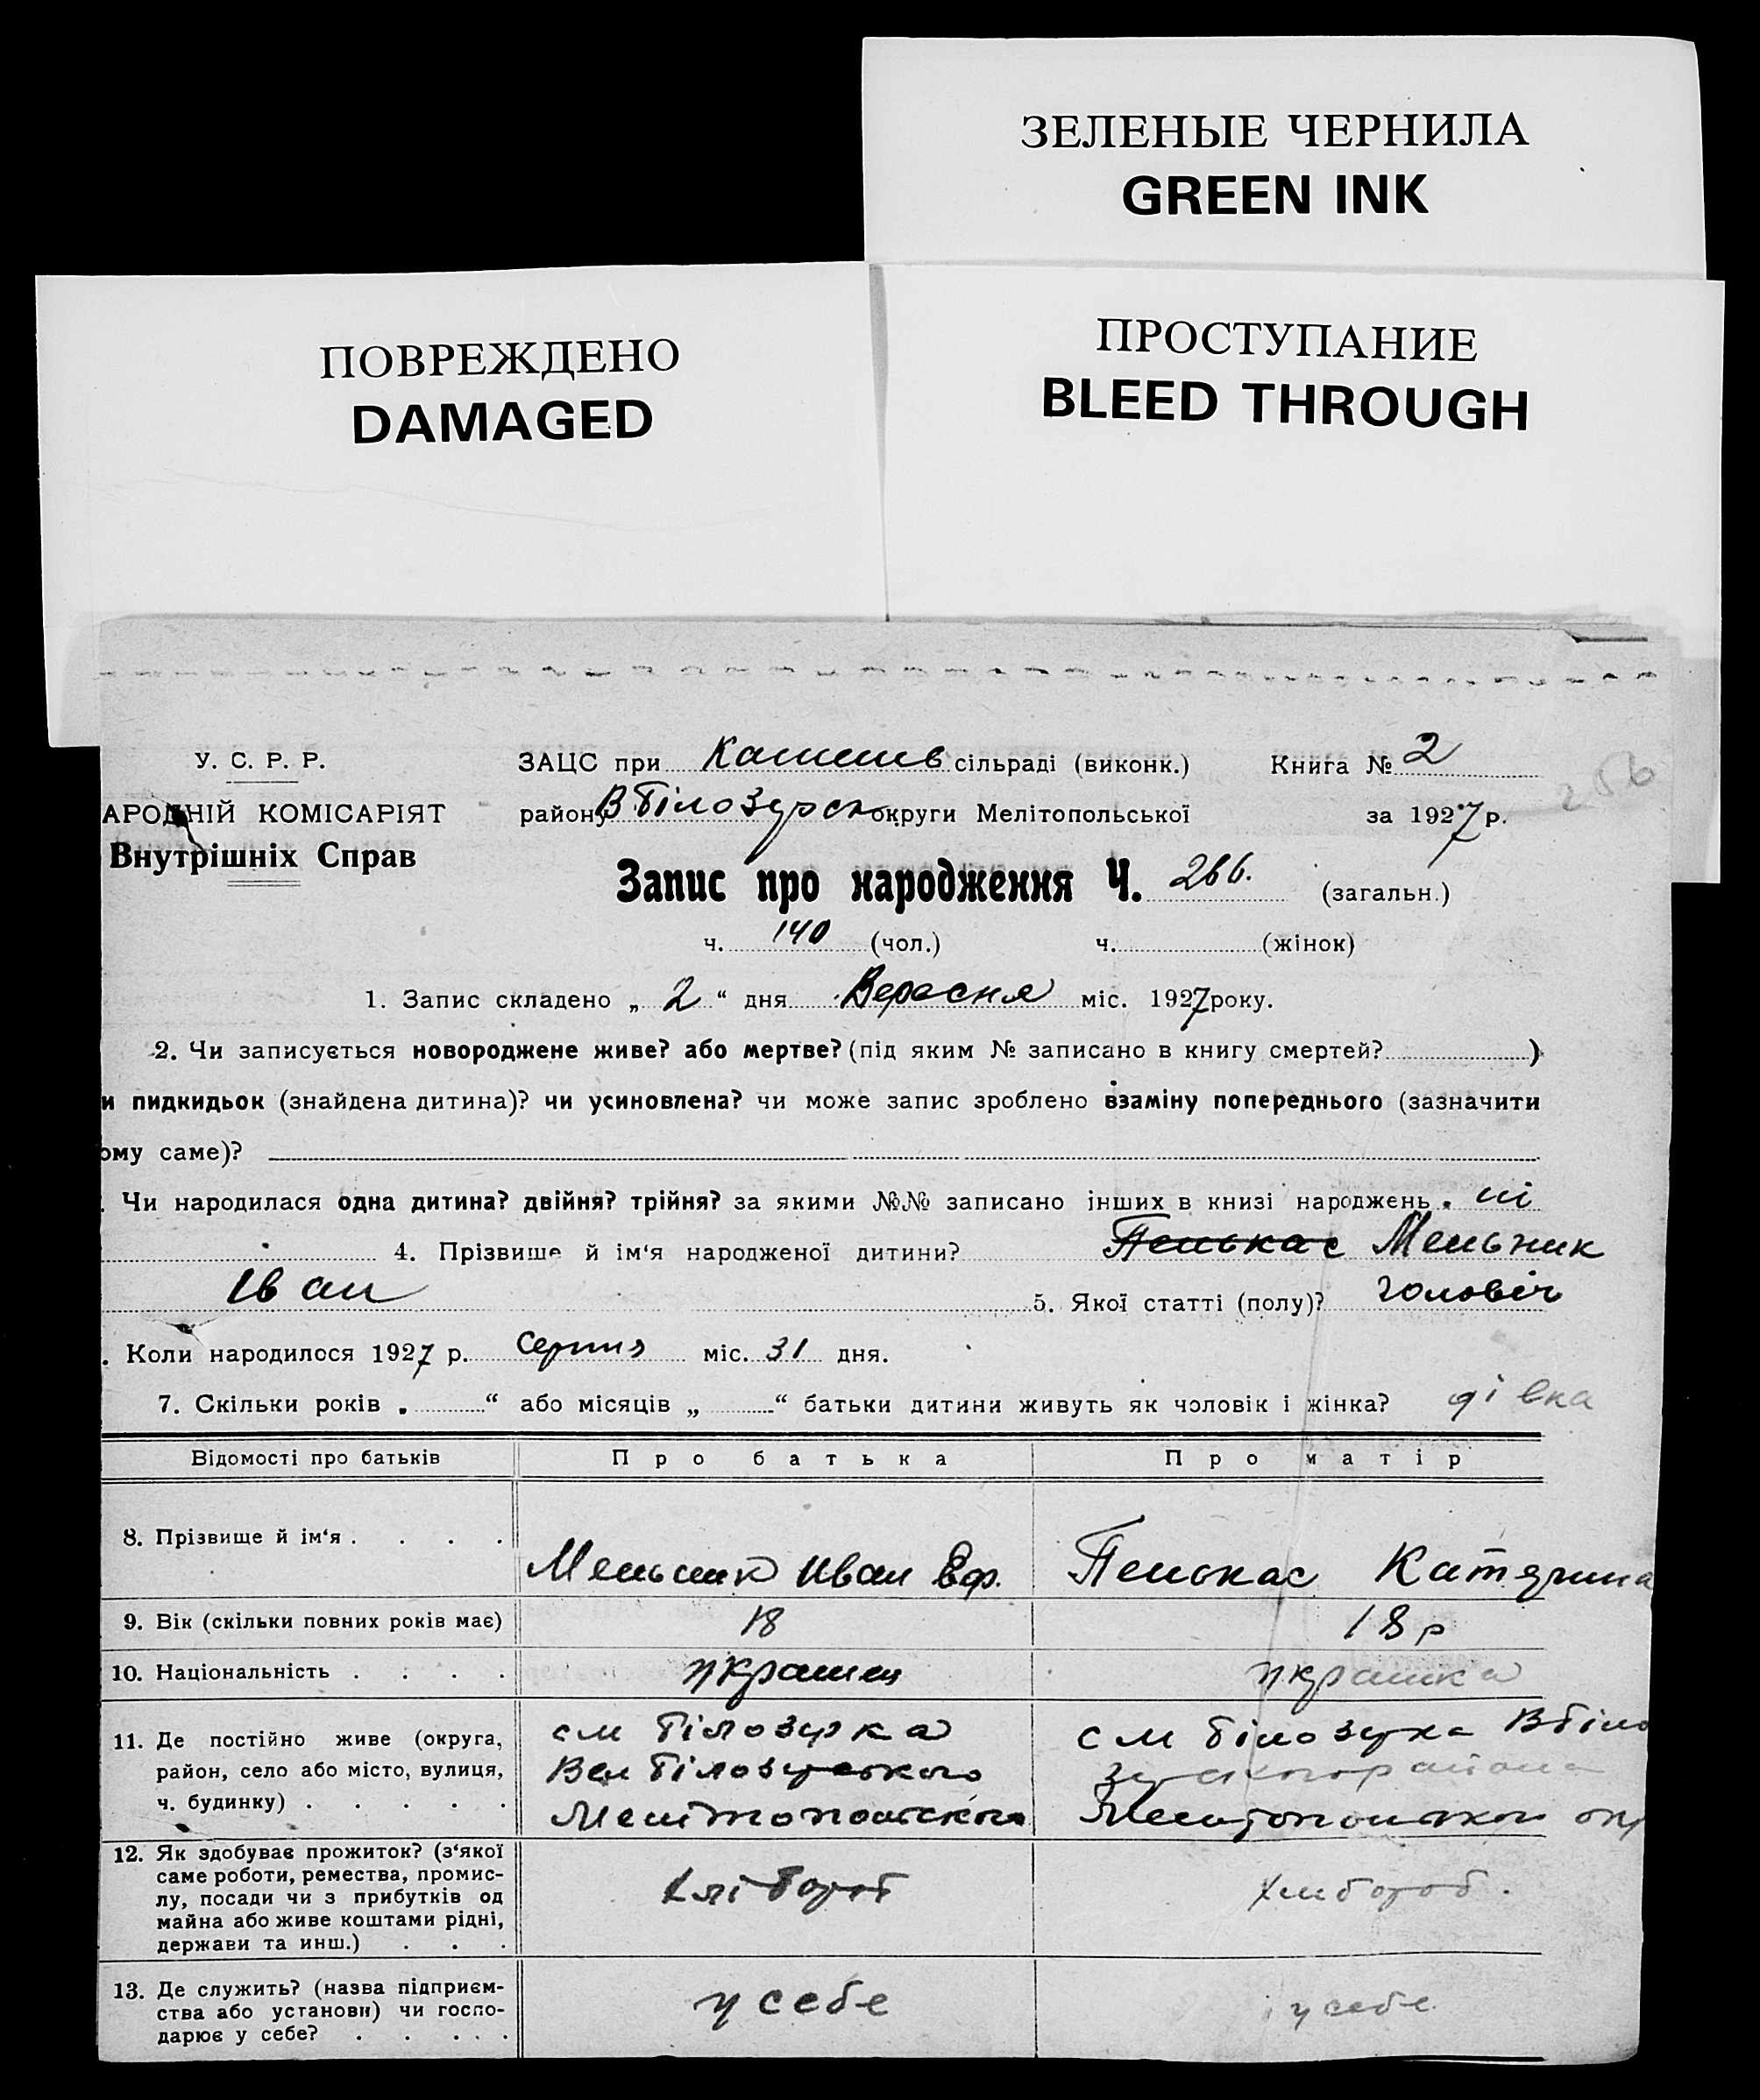 ЗЕЛЕНЫЕ ЧЕРНИЛА
GREEN INK
ПОВРЕЖДЕНО
DAMAGED
ПРОСТУПАНИЕ
BLEED THROUGH
У. С. Р. Р.
ЗАЦС при сільраді (виконк.) Книга № 2
АРОДНІЙ КОМІСАРІЯТ
району В Білозурск округи Мелітопольської за 1927 р.
Внутрішніх Справ
Запис про народження Ч. 266. (загальн.)
ч. 140 (чол.) ч. (жінок)
1. Запис складено „ 2 “ дня Вересня міс. 1927 року.
2. Чи записується новороджене живе? або мертве? (під яким № записано в книгу смертей? )
и пидкидьок (знайдена дитина)? чи усиновлена? чи може запис зроблено взаміну попереднього (зазначити
ому саме)?
. Чи народилася одна дитина? двійня? трійня? за якими №№ записано інших в книзі народжень. ні
4. Прізвище й ім‘я народженої дитини? Пенькас Мельник
Іван 5. Якої статті (полу)?
. Коли народилося 1927 р. Серпня міс. 31 дня.
7. Скільки років „ “ або місяців „ “ батьки дитини живуть як чоловік і жінка? дівка
Відомості про батьків Про батька Про матір
8. Прізвище й ім‘я . . . . Мельник Иван Єф. Пенькас Катерина
9. Вік (скільки повних років має) 18 18 р
10. Національність . . . . украинец украинка
11. Де постійно живе (округа, район, село або місто, вулиця, ч. будинку) . . . . .
см Білозурка
Вел Білозурського
Мелітопольського
см Білозурка В Біло
зурського района
Мелітопольскои окр
12. Як здобуває прожиток? (з‘якої саме роботи, ремества, промислу, посади чи з прибутків од майна або живе коштами рідні, держави та инш.) . . .
хлібороб
хлибороб.
13. Де служить? (назва підприємства або установи) чи господарює у себе? . . . . .
у себе
у себе